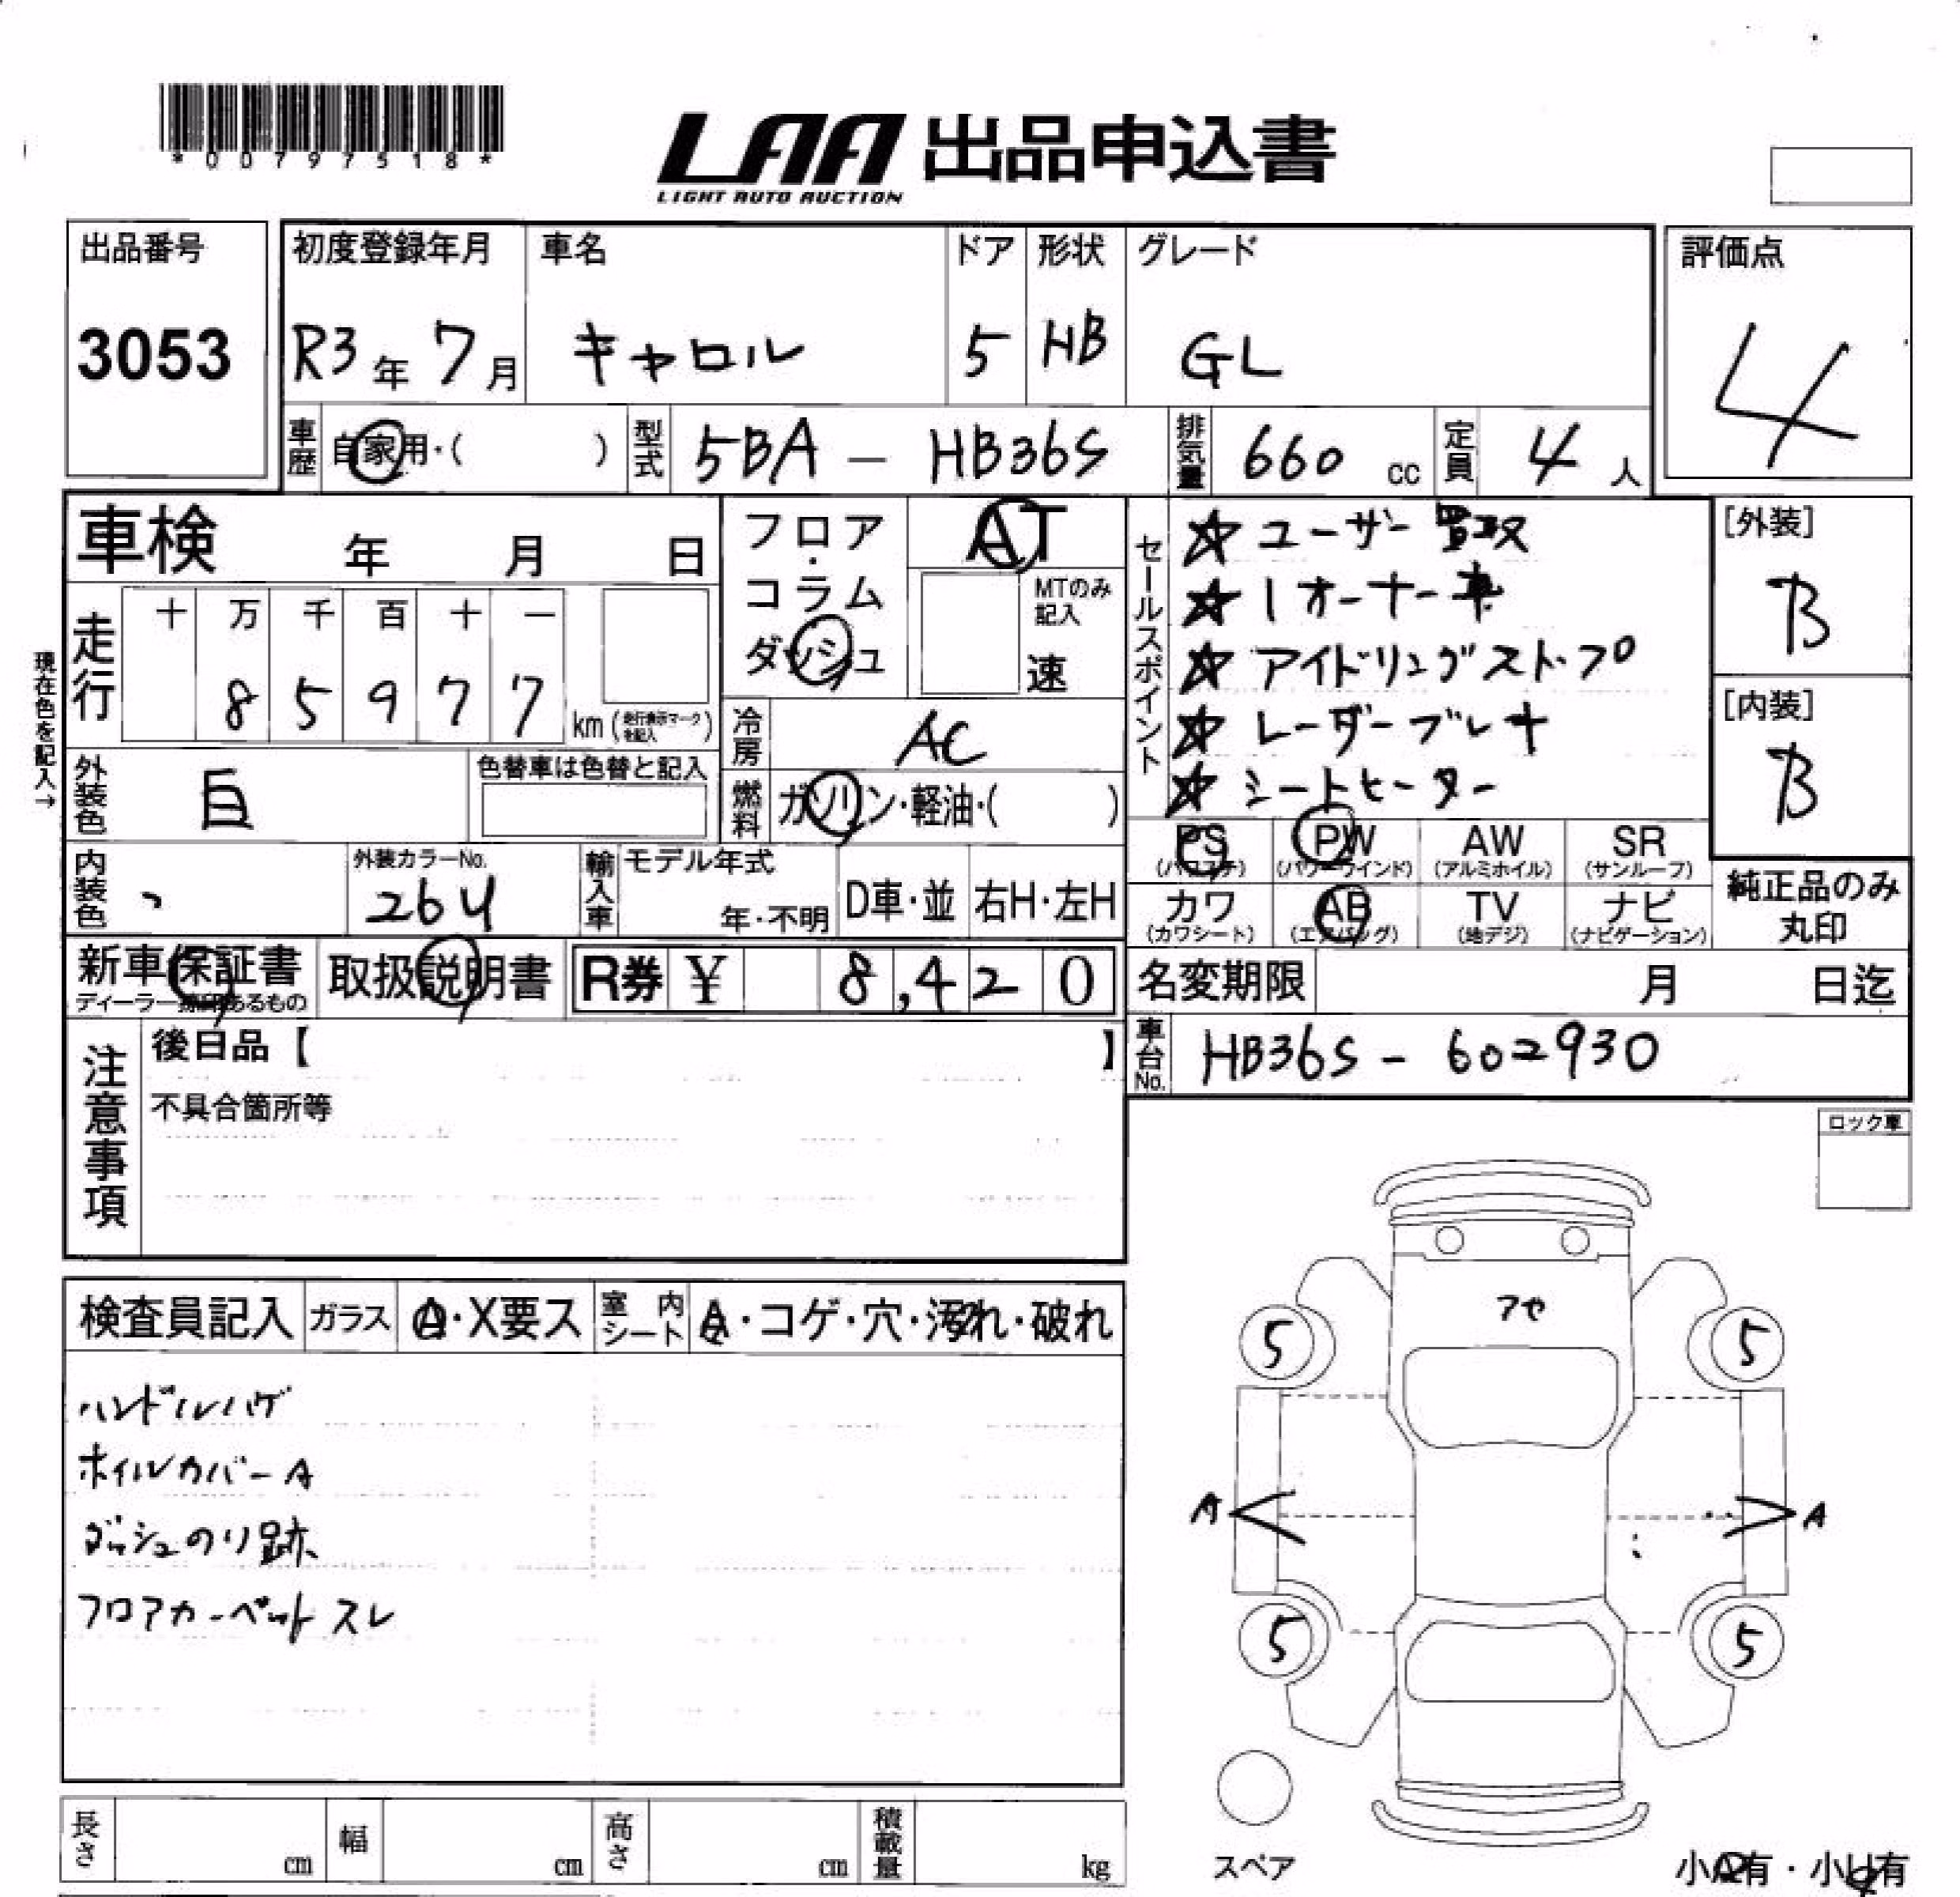 *00797518*
LAA 出品申込書
LIGHT AUTO AUCTION
出品番号 初度登録年月 車名 ドア 形状 グレード 評価点
3053 R3年 7月 キャロル 5 HB GL 4
車歴 自家用・( ) 型式 5BA - HB36S 排気量 660 cc 定員 4 人
車検 年 月 日
フロア・コラム ダッシュ
AT
MTのみ記入
速
セールスポイント
☆ ユーザー買取
☆ 1オーナー車
☆ アイドリングストップ
☆ レーダーブレーキ
☆ シートヒーター
[外装]
B
[内装]
B
現在色を記入→
走行 十 万 千 百 十 一
8 5 9 7 7 km (走行表示マークを記入)
冷房 AC
外装色 白 色替車は色替と記入
燃料 ガソリン・軽油・( )
PS (パワステ) PW (パワーウインド) AW (アルミホイル) SR (サンルーフ)
カワ (カワシート) AB (エアバッグ) TV (地デジ) ナビ (ナビゲーション)
純正品のみ丸印
内装色 外装カラーNo. 26U
輸入車 モデル年式 年・不明 D車・並 右H・左H
新車保証書 ディーラー捺印あるもの 取扱説明書 R券 ¥ 8,420
名変期限 月 日迄
注意事項 後日品【 】
不具合箇所等
車台No. HB36S - 602930
ロック車
検査員記入 ガラス A・X要ス 室内シート A・コゲ・穴・汚れ・破れ
ハンドルハゲ
ホイルカバーA
ダッシュのり跡
フロアカーペットスレ
アセ
5 5
A A
5 5
スペア
小A有・小U有
長さ cm 幅 cm 高さ cm 積載量 kg